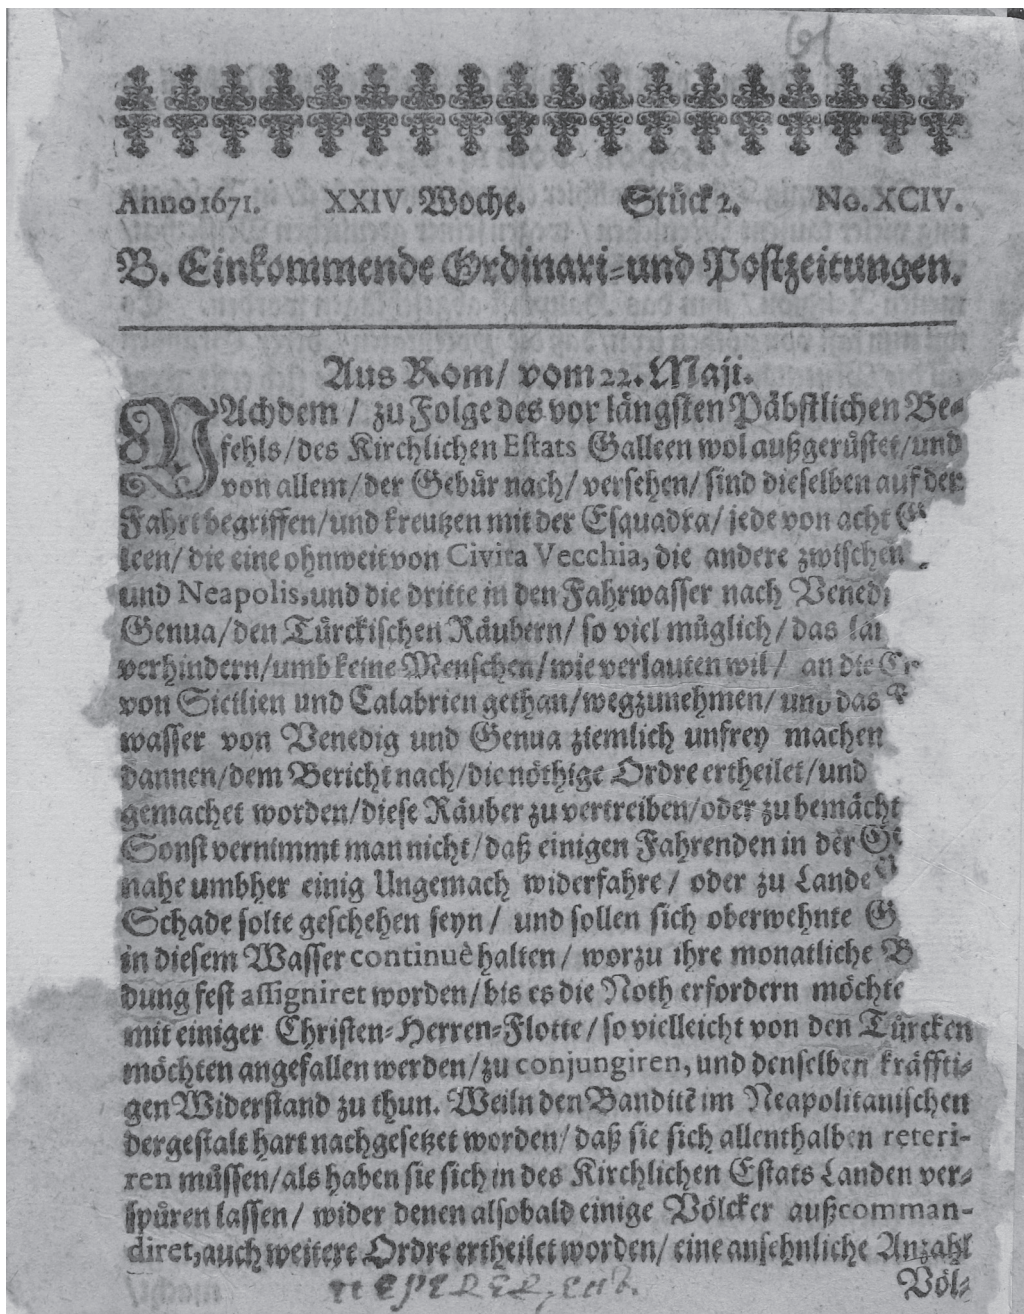 Anno 1671. XXIV. Woche. Stück 2. No. XCIV.
B. Einkommende Ordinari-und Postzeitungen.
Aus Rom/ vom 22. Maji.
NAchdem/ zu Folge des vor längsten Päbstlichen Be-
fehls/des Kirchlichen Estats Galleen wol außgerüstet/und
von allem/der Gebür nach/ versehen/ sind dieselben auf der
Fahrt begriffen/und kreutzen mit der Esquadra/ jede von acht
leen/ die eine ohnweit von Civita Vecchia, die andere zwischen
und Neapolis, und die dritte in den Fahrwasser nach Venedi
Genua/den Türckischen Räubern/ so viel müglich/ das
verhindern/umb keine Menschen/wie verlauten wil/ an die
von Sicilien und Calabrien gethan/wegzunehmen/ und das
wasser von Venedig und Genua ziemlich unfrey machen
dannen/dem Bericht nach/die nöthige Ordre ertheilet/und
gemachet worden/diese Räuber zu vertreiben/oder zu bemächt
Sonst vernimmt man nicht/daß einigen Fahrenden in der
nahe umbher einig Ungemach widerfahre/ oder zu Lande
Schade solte geschehen seyn/ und sollen sich oberwehnte G
in diesem Wasser continuè halten/ worzu ihre monatliche B
dung fest assigniret worden/bis es die Noth erfordern möchte
mit einiger Christen-Herren-Flotte/so vielleicht von den Türcken
möchten angefallen werden/zu conjungiren, und denselben kräffti-
gen Widerstand zu thun. Weiln den Banditẽ im Neapolitanischen
dergestalt hart nachgesetzet worden/ daß sie sich allenthalben reteri-
ren müssen/als haben sie sich in des Kirchlichen Estats Landen ver-
spüren lassen/ wider denen alsobald einige Völcker außcomman-
diret, auch weitere Ordre ertheilet worden/ eine ansehnliche Anzahl
Völ-